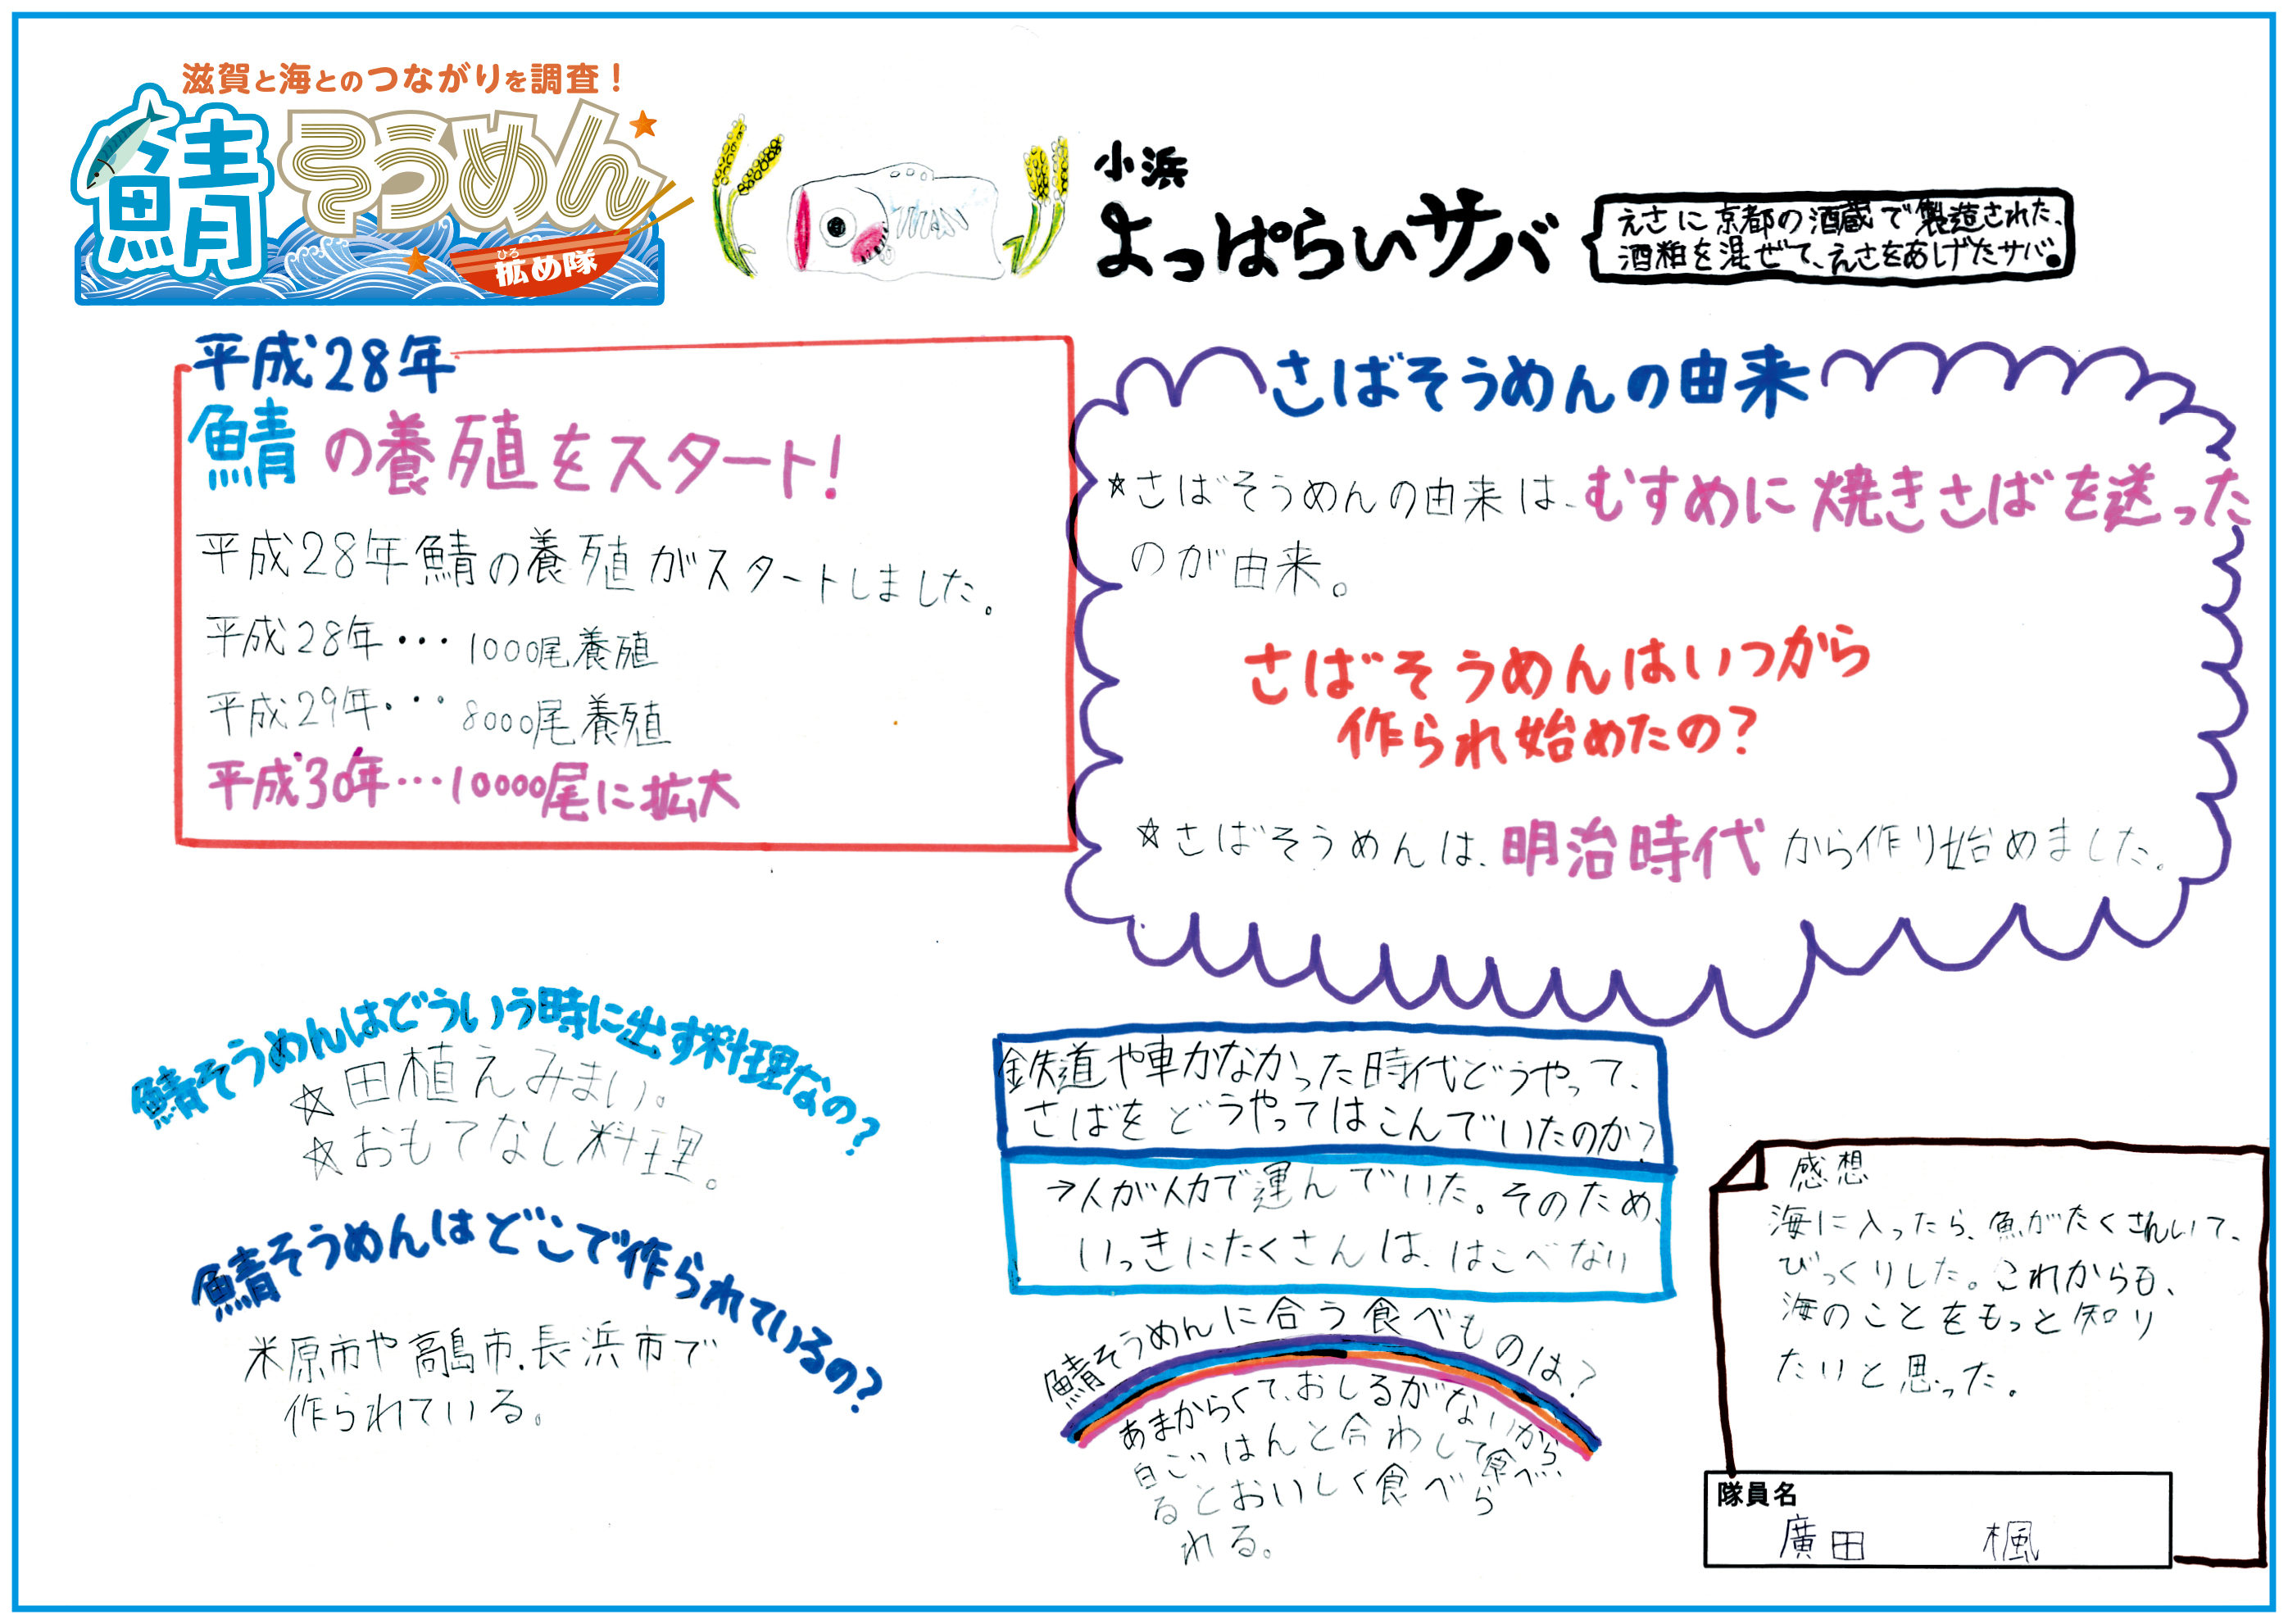 滋賀と海とのつながりを調査！
鯖そうめん
ひろ
拡め隊
小浜
よっぱらいサバ
えさに京都の酒蔵で製造された、
酒粕を混ぜて、えさをあげたサバ。
平成28年
鯖の養殖をスタート！
平成28年鯖の養殖がスタートしました。
平成28年・・・1000尾養殖
平成29年・・・8000尾養殖
平成30年・・・10000尾に拡大
さばそうめんの由来
☆さばそうめんの由来は、むすめに焼きさばを送った
のが由来。
さばそうめんはいつから
作られ始めたの？
☆さばそうめんは、明治時代から作り始めました。
鯖そうめんはどういう時に出す料理なの？
☆田植えみまい。
☆おもてなし料理。
鯖そうめんはどこで作られているの？
米原市や高島市、長浜市で
作られている。
鉄道や車がなかった時代どうやって、
さばをどうやってはこんでいたのか？
→人が人力で運んでいた。そのため、
いっきにたくさんは、はこべない
鯖そうめんに合う食べものは？
あまからくて、おしるがないから、
白ごはんと合わして食べ
るとおいしく食べら
れる。
感想
海に入ったら、魚がたくさんいて、
びっくりした。これからも、
海のことをもっと知り
たいと思った。
隊員名
廣田 楓